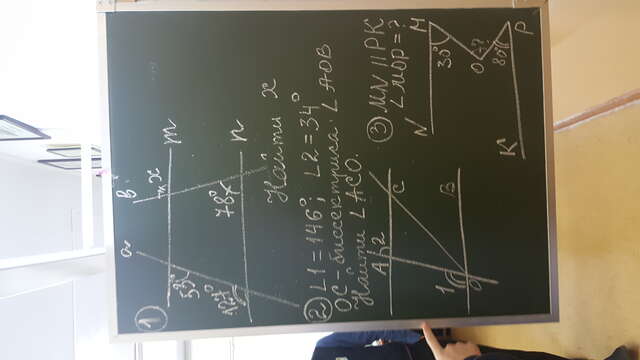 ① a b
x
m
53°
127°
78°
n
Найти x
② ∠1=146°; ∠2=34°
OC-биссектриса ∠AOB
Найти ∠ACO.
A 2
C
1
B
O
③ MN || PK
∠MOP=?
N M
30°
O ?
80°
K
P